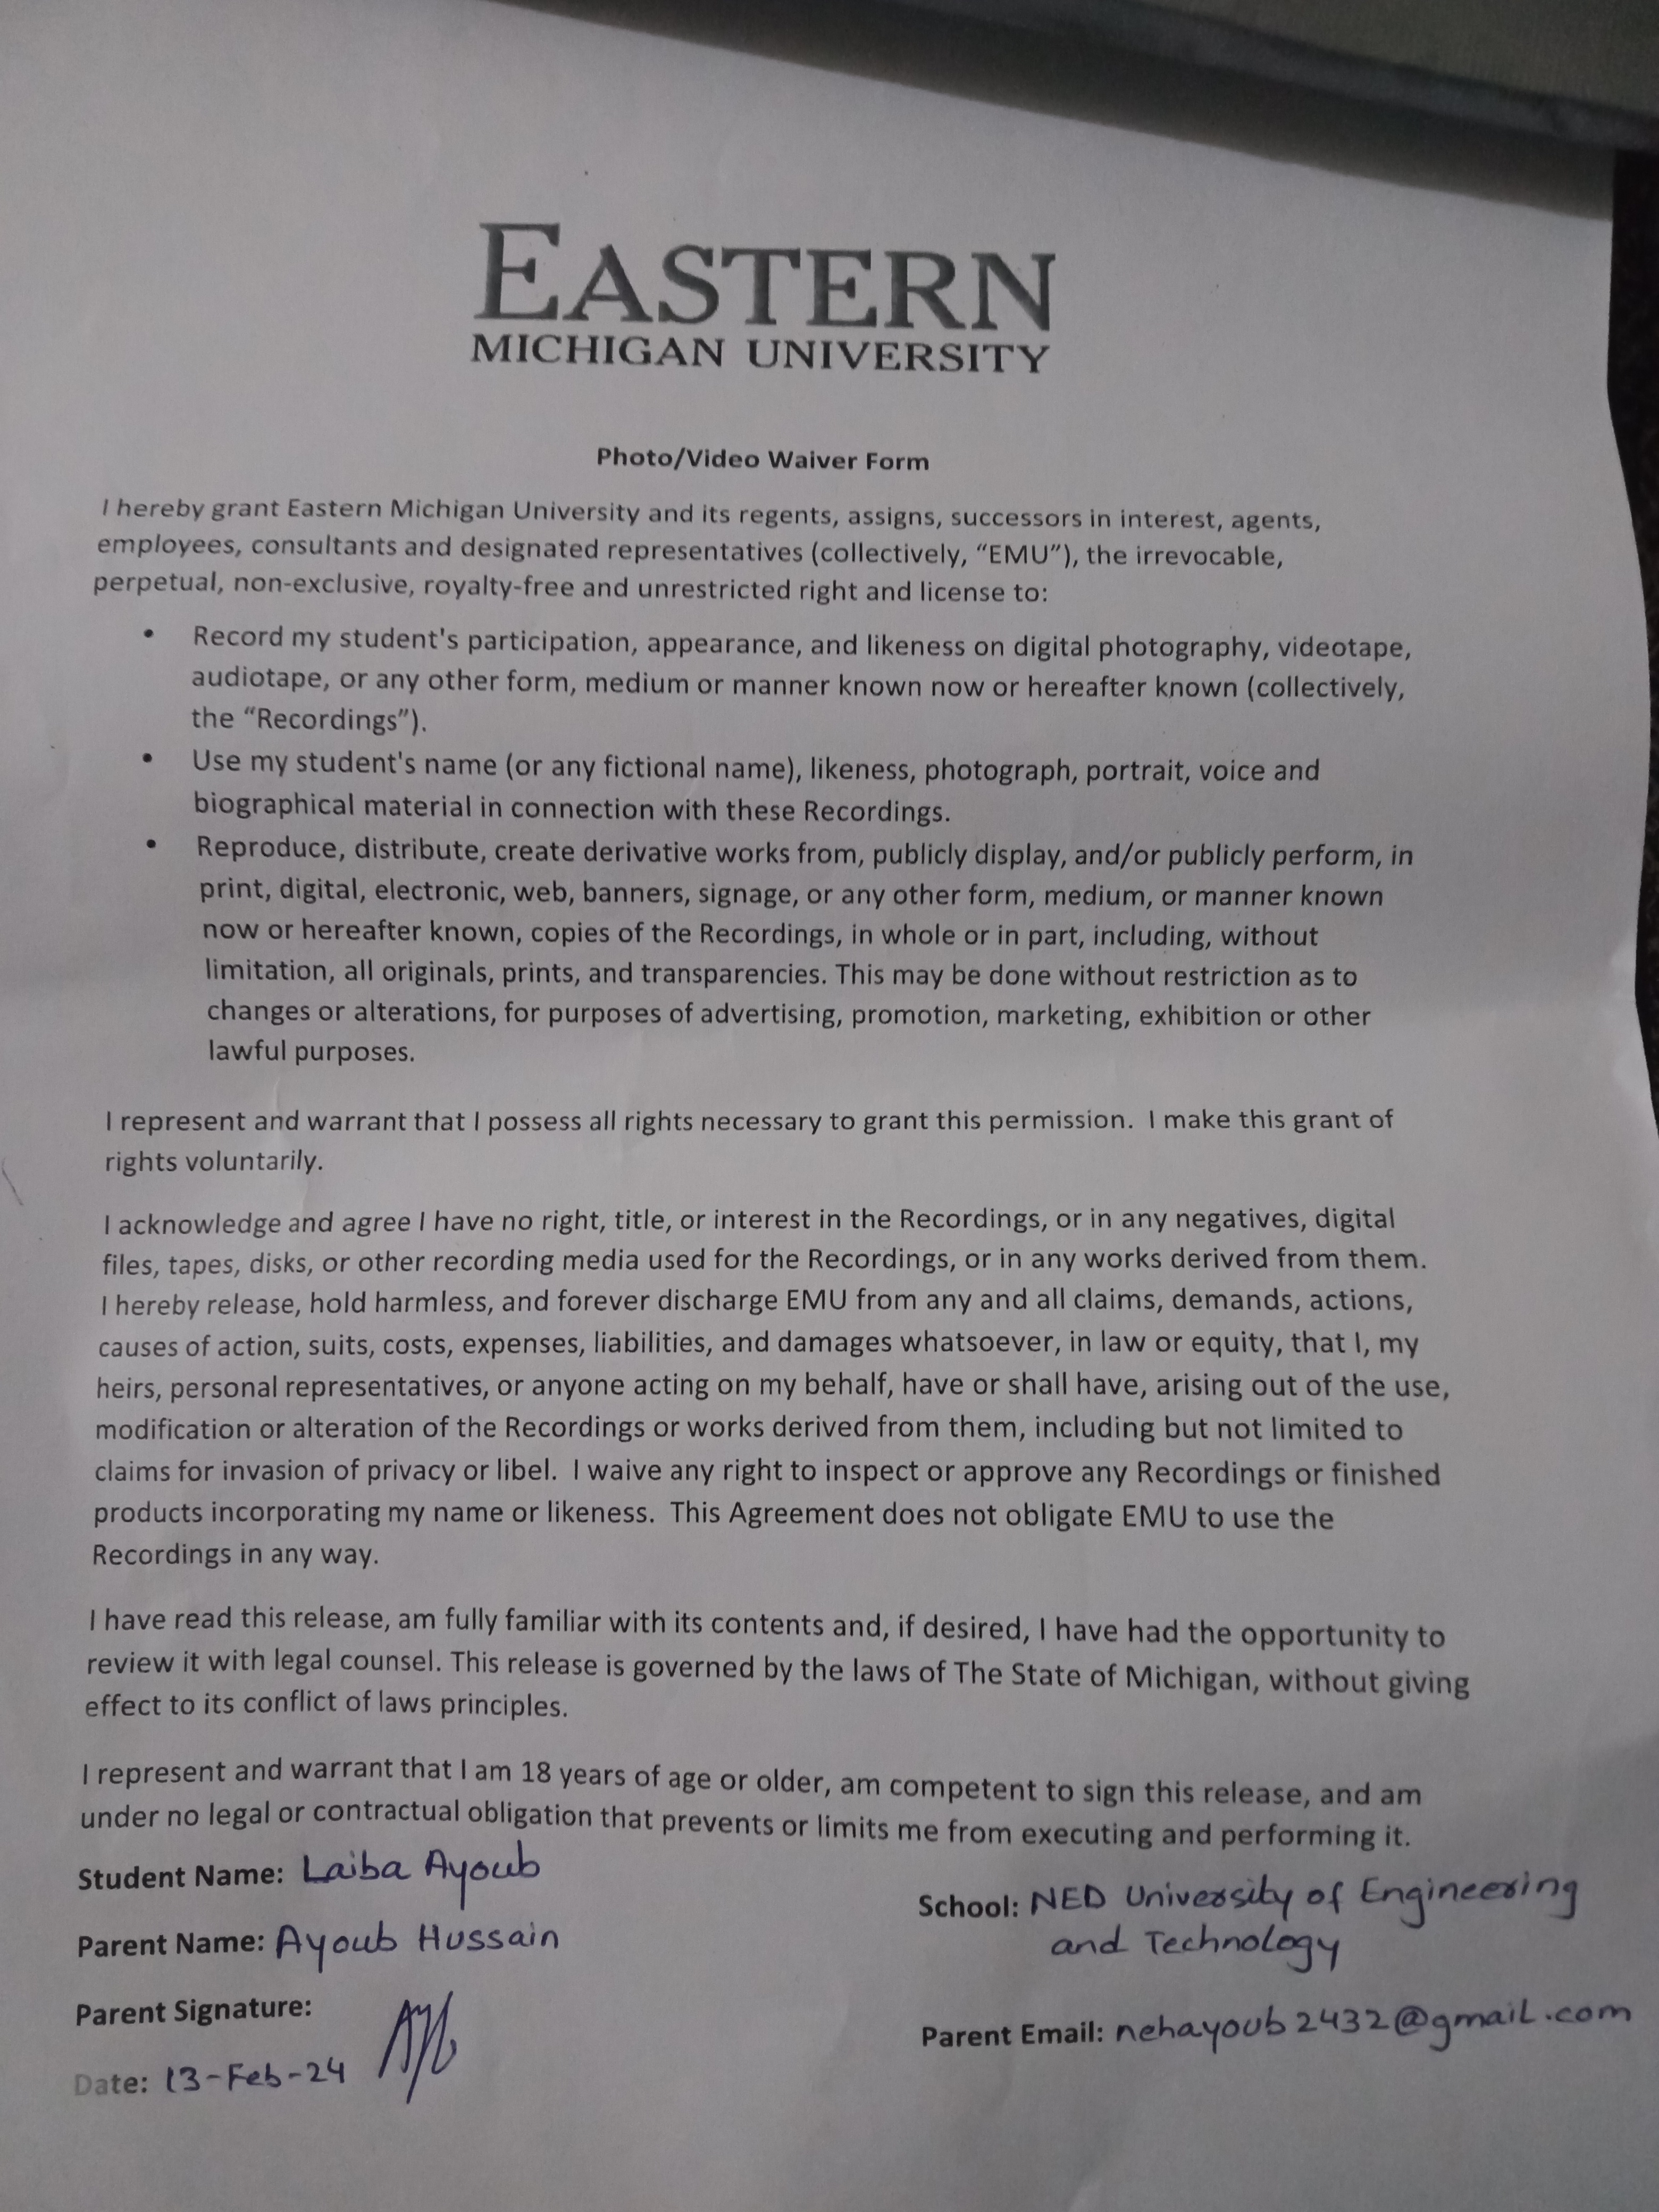 EASTERN
MICHIGAN UNIVERSITY
Photo/Video Waiver Form
I hereby grant Eastern Michigan University and its regents, assigns, successors in interest, agents,
employees, consultants and designated representatives (collectively, “EMU”), the irrevocable,
perpetual, non-exclusive, royalty-free and unrestricted right and license to:
• Record my student's participation, appearance, and likeness on digital photography, videotape,
audiotape, or any other form, medium or manner known now or hereafter known (collectively,
the “Recordings”).
• Use my student's name (or any fictional name), likeness, photograph, portrait, voice and
biographical material in connection with these Recordings.
• Reproduce, distribute, create derivative works from, publicly display, and/or publicly perform, in
print, digital, electronic, web, banners, signage, or any other form, medium, or manner known
now or hereafter known, copies of the Recordings, in whole or in part, including, without
limitation, all originals, prints, and transparencies. This may be done without restriction as to
changes or alterations, for purposes of advertising, promotion, marketing, exhibition or other
lawful purposes.
I represent and warrant that I possess all rights necessary to grant this permission. I make this grant of
rights voluntarily.
I acknowledge and agree I have no right, title, or interest in the Recordings, or in any negatives, digital
files, tapes, disks, or other recording media used for the Recordings, or in any works derived from them.
I hereby release, hold harmless, and forever discharge EMU from any and all claims, demands, actions,
causes of action, suits, costs, expenses, liabilities, and damages whatsoever, in law or equity, that I, my
heirs, personal representatives, or anyone acting on my behalf, have or shall have, arising out of the use,
modification or alteration of the Recordings or works derived from them, including but not limited to
claims for invasion of privacy or libel. I waive any right to inspect or approve any Recordings or finished
products incorporating my name or likeness. This Agreement does not obligate EMU to use the
Recordings in any way.
I have read this release, am fully familiar with its contents and, if desired, I have had the opportunity to
review it with legal counsel. This release is governed by the laws of The State of Michigan, without giving
effect to its conflict of laws principles.
I represent and warrant that I am 18 years of age or older, am competent to sign this release, and am
under no legal or contractual obligation that prevents or limits me from executing and performing it.
Student Name: Laiba Ayoub
School: NED University of Engineering
and Technology
Parent Name: Ayoub Hussain
Parent Signature:
Parent Email: nehayoub2432@gmail.com
Date: 13-Feb-24